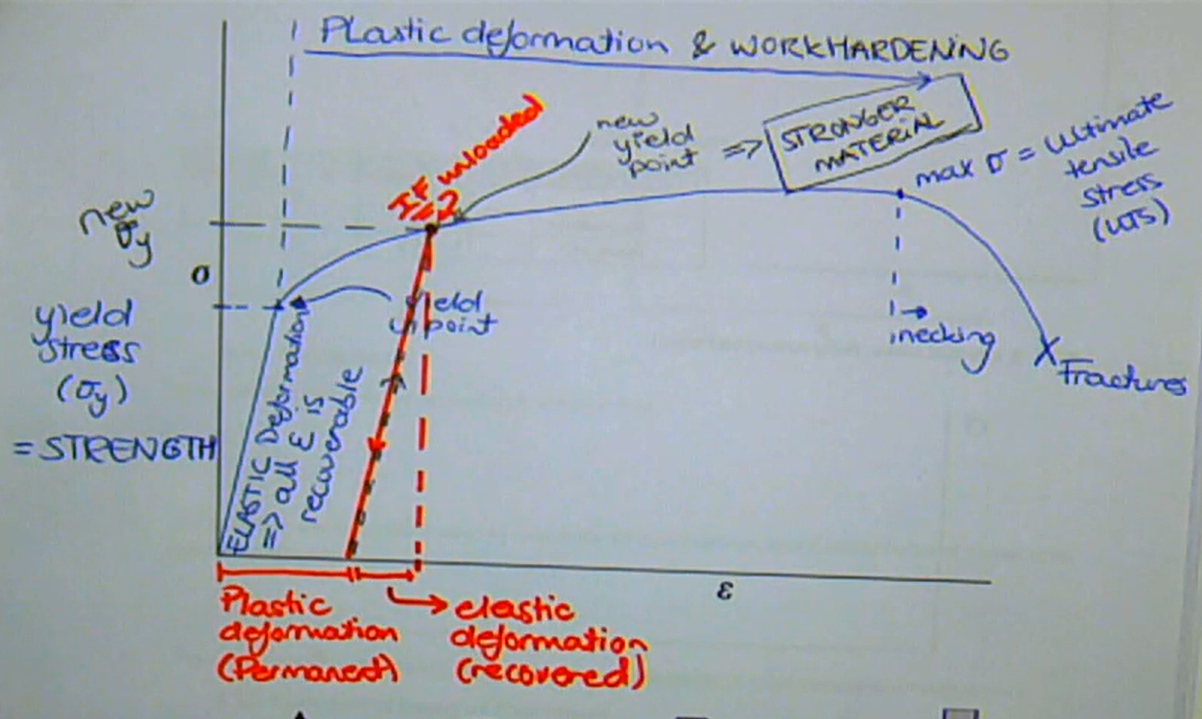 Plastic deformation & WORKHARDENING
IF unloaded
new
yield
point
=> STRONGER
MATERIAL
max σ = ultimate
tensile
stress
(UTS)
new
σy
σ
yield
stress
(σy)
= STRENGTH
yield
point
ELASTIC Deformation
=> all ε is
recoverable
necking
Fractures
ε
Plastic
deformation
(Permanent)
elastic
deformation
(recovered)